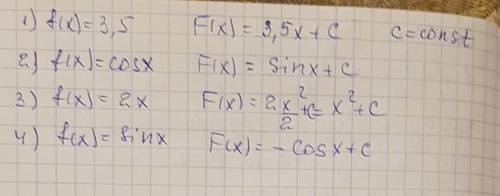 1) f(x)=3,5 F(x)=3,5x+C C=const
2) f(x)=cosx F(x)=sinx+C
3) f(x)=2x F(x)=2x²/2+C=x²+C
4) f(x)=sinx F(x)=-cosx+C